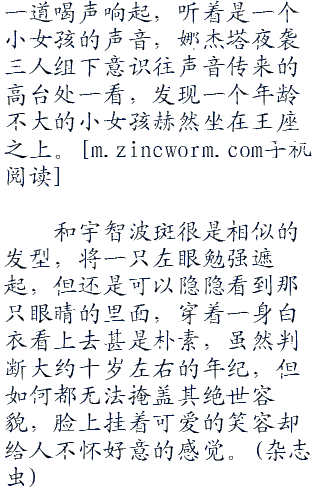 一道喝声响起，听着是一个
小女孩的声音，娜杰塔夜袭
三人组下意识往声音传来的
高台处一看，发现一个年龄
不大的小女孩赫然坐在王座
之上。[m.zincworm.com手机
阅读]
和宇智波斑很是相似的
发型，将一只左眼勉强遮
起，但还是可以隐隐看到那
只眼睛的里面，穿着一身白
衣看上去甚是朴素，虽然判
断大约十岁左右的年纪，但
如何都无法掩盖其绝世容
貌，脸上挂着可爱的笑容却
给人不怀好意的感觉。(杂志
虫)